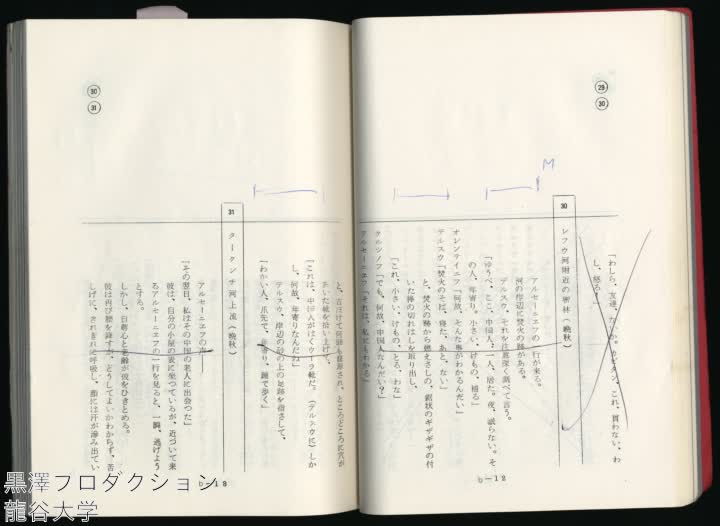 ㉙
㉚
「わしら、友達、でないか。カピタン、これ、買わない、わ
し、怒る！」
30
レフウ河附近の密林（晩秋）
アルセーニエフの一行が来る。
河の岸辺に焚火の跡がある。
デルスウ、それを注意深く調べて言う。
「ゆうべ、ここ、中国人、一人、居た。夜、眠らない。そ
の人、年寄り。小さい、けもの、捕る」
オレンテイエフ「何故、そんな事がわかるんだい」
デルスウ「焚火のそば、寝た、あと、ない」
と、焚火の跡から燃えさしの、鋸状のギザギザの付
いた棒の切れはしを取り出し、
「これ、小さい、けもの、とる、わな」
ツルツノフ「でも、何故、中国人なんだい？」
アルセーニエフ「それは、私にもわかる」
b－12
㉚
㉛
と、
「これは、中国人がはくウーラ靴だ。（デルスウに）しか
し、何故、年寄りなんだね」
デルスウ、岸辺の砂の上の足跡を指さして、
「わかい人、爪先で、年寄り、踵で歩く」
31
タークンチ河上流（晩秋）
アルセーニエフの声――
「その翌日、私はその中国の老人に出会つた」
彼は、自分の小屋の前に坐つているが、近づいて来
るアルセーニエフの一行を見ると、一瞬、逃げよう
とする。
しかし、自尊心と老齢が彼をひきとめる。
彼は再び腰を降すが、どうしてよいかわからず、苦
しげに、きれぎれに呼吸し、顔には汗が滲み出てい
b－13
M
黒澤プロダクション
龍谷大学